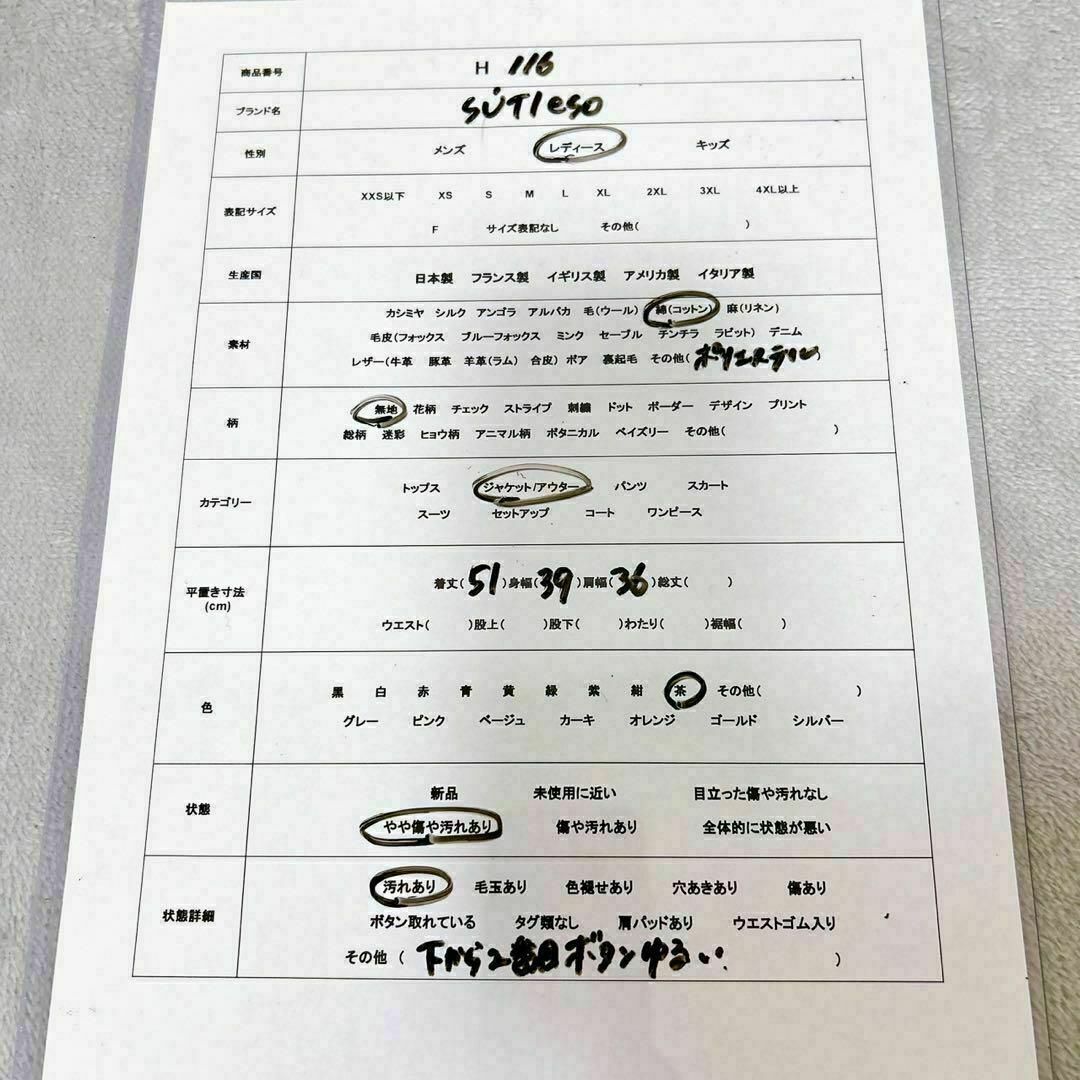 商品番号 H 116
ブランド名 SÚTIeSO
性別 メンズ レディース キッズ
表記サイズ XXS以下 XS S M L XL 2XL 3XL 4XL以上
F サイズ表記なし その他( )
生産国 日本製 フランス製 イギリス製 アメリカ製 イタリア製
素材 カシミヤ シルク アンゴラ アルパカ 毛(ウール) 綿(コットン) 麻(リネン)
毛皮(フォックス ブルーフォックス ミンク セーブル チンチラ ラビット) デニム
レザー(牛革 豚革 羊革(ラム) 合皮) ボア 裏起毛 その他( ポリエステル)
柄 無地 花柄 チェック ストライプ 刺繍 ドット ボーダー デザイン プリント
総柄 迷彩 ヒョウ柄 アニマル柄 ボタニカル ペイズリー その他( )
カテゴリー トップス ジャケット/アウター パンツ スカート
スーツ セットアップ コート ワンピース
平置き寸法 (cm) 着丈(51)身幅(39)肩幅(36)総丈( )
ウエスト( )股上( )股下( )わたり( )裾幅( )
色 黒 白 赤 青 黄 緑 紫 紺 茶 その他( )
グレー ピンク ベージュ カーキ オレンジ ゴールド シルバー
状態 新品 未使用に近い 目立った傷や汚れなし
やや傷や汚れあり 傷や汚れあり 全体的に状態が悪い
状態詳細 汚れあり 毛玉あり 色褪せあり 穴あきあり 傷あり
ボタン取れている タグ類なし 肩パッドあり ウエストゴム入り
その他 ( 下から2番目ボタンゆるい. )